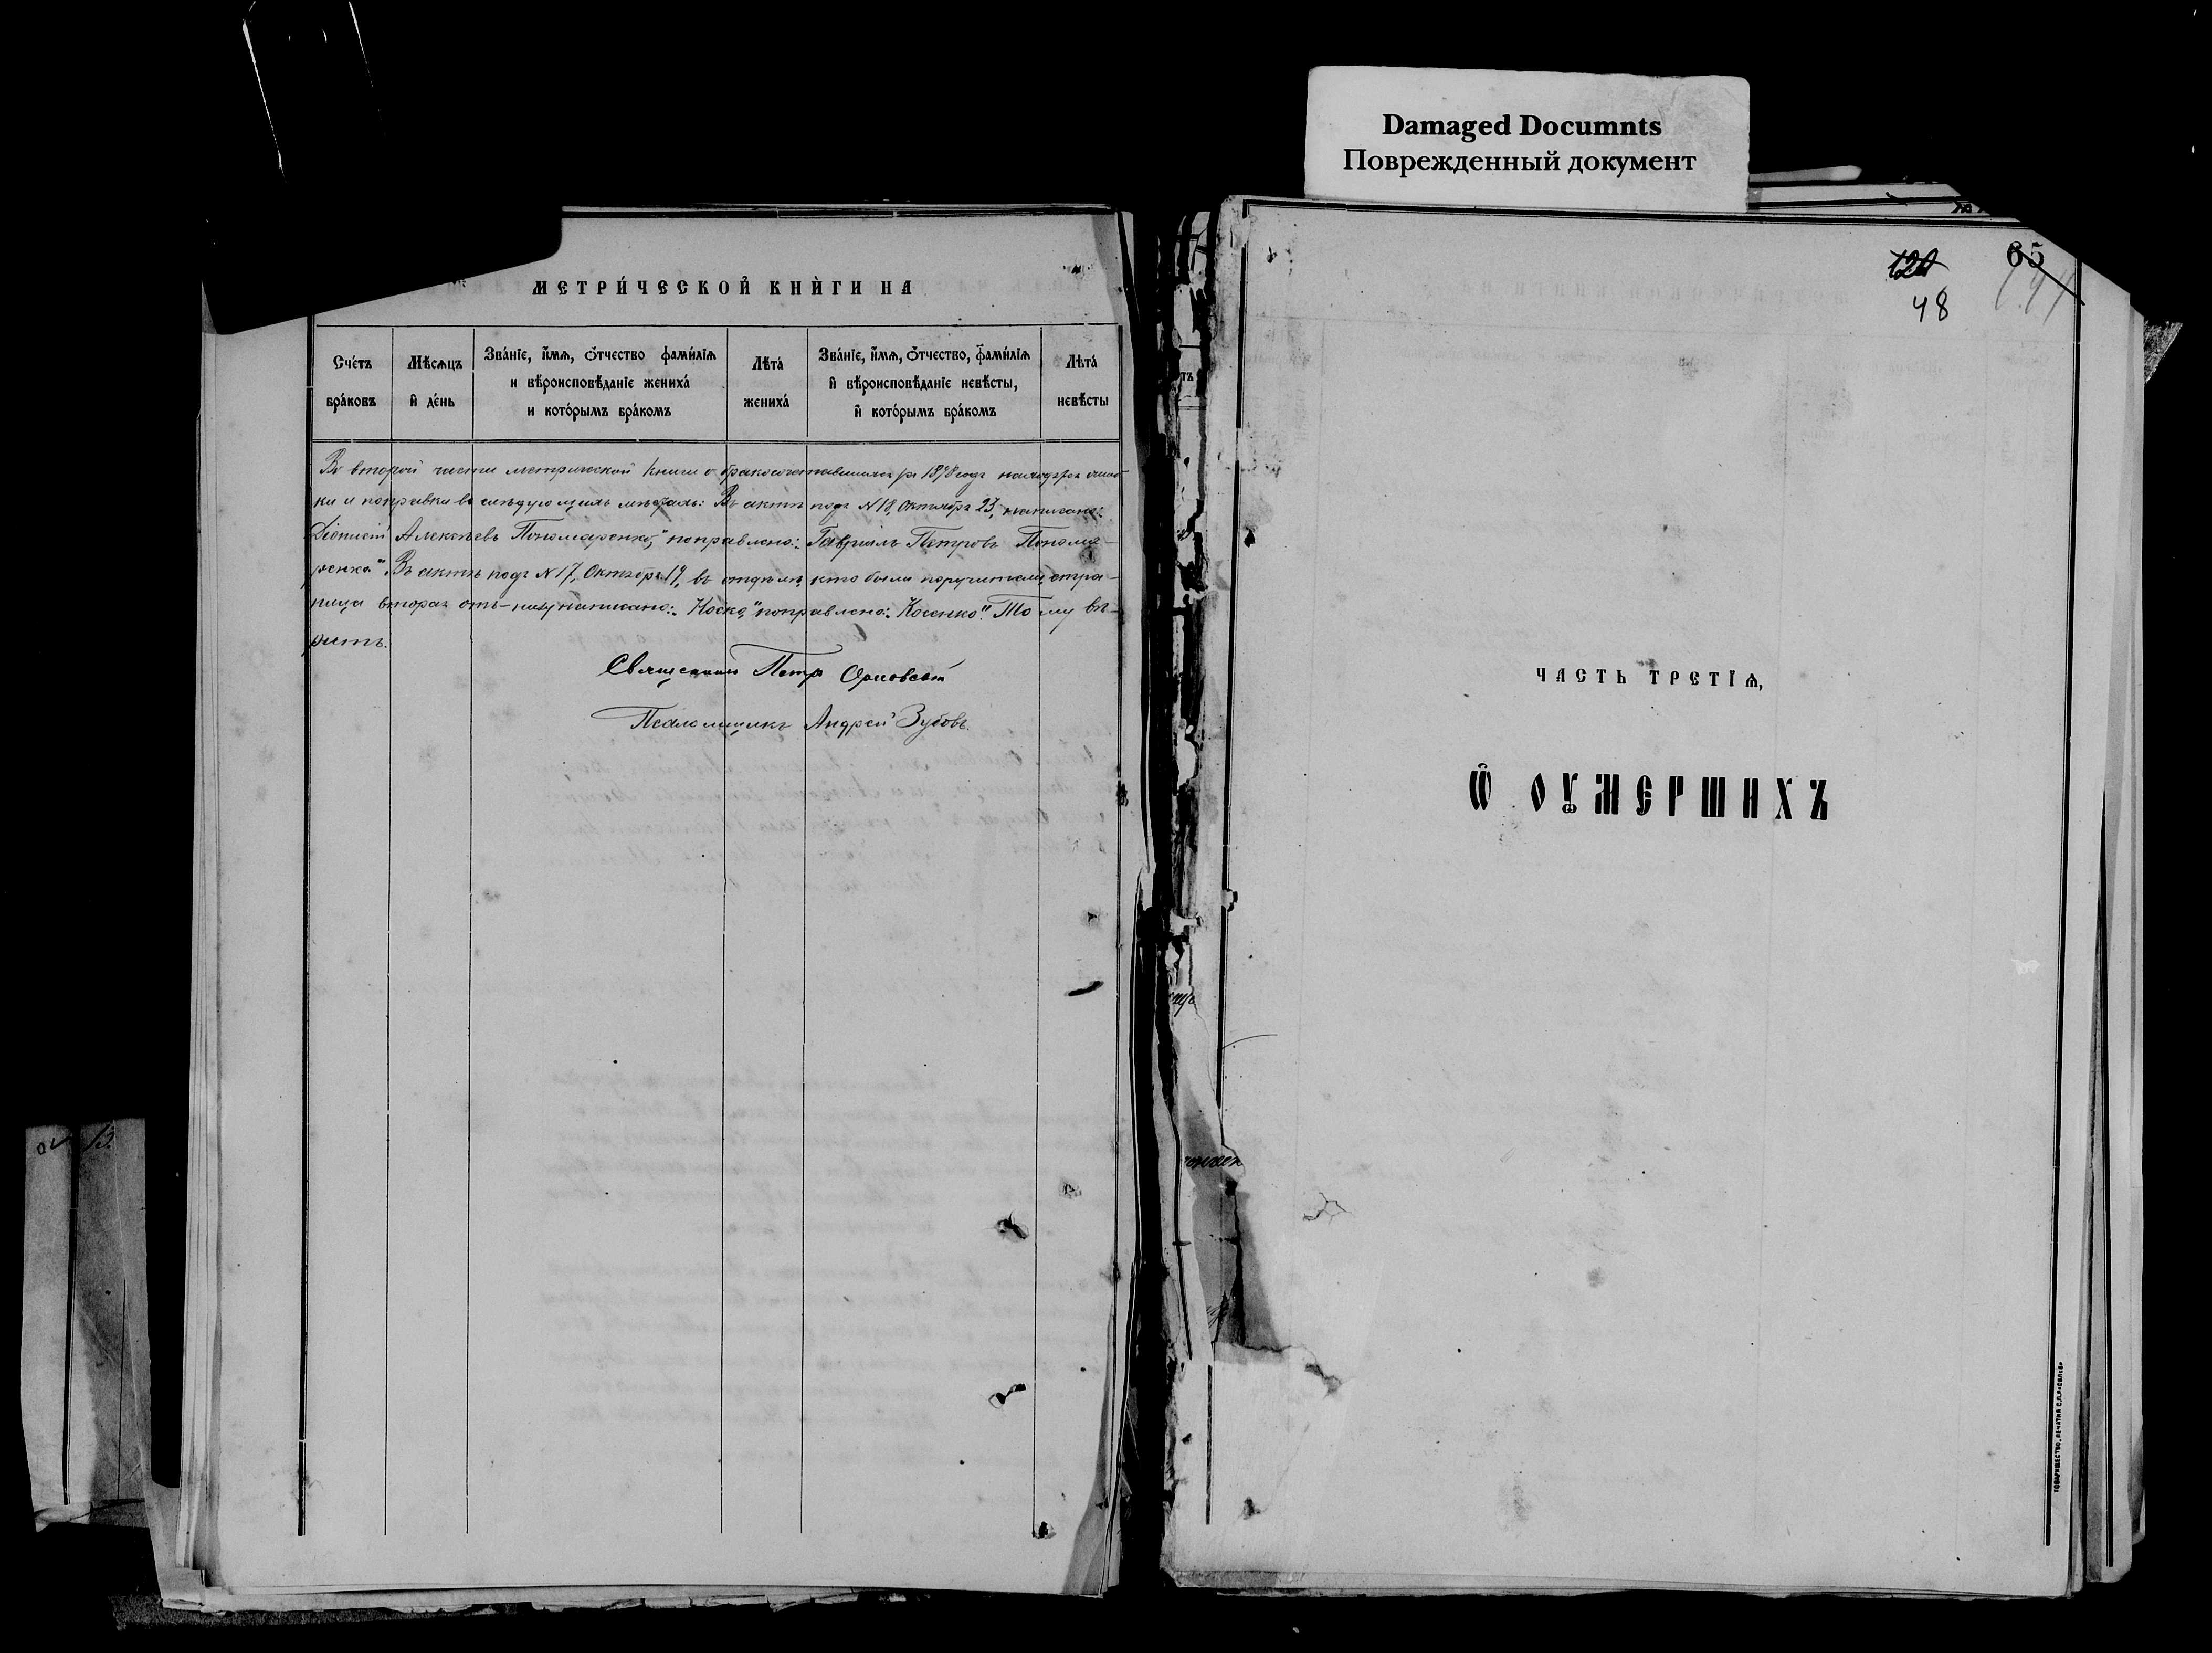 Damaged Documnts
Поврежденный документ
МЕТРИ́ЧЕСКОЙ КНИ́ГИ НА
Сче́тъ бра́ковъ
Мѣсѧцъ и҆ де́нь
Зва́нїе, и҆мѧ, ѻ҆тчество фами́лїѧ и вѣроисповѣданїе жениха́ и кото́рымъ бра́комъ
Лѣта́ жениха́
Зва́нїе, и҆мѧ, ѻ҆тчество, фами́лїѧ и҆ вѣроисповѣданїе невѣсты, и҆ кото́рымъ бра́комъ
Лѣта́ невѣсты
Во второй части метрической книги о бракосочетавшихся за 1898 годъ находятся ошиб-
ки и поправки въ слѣдующихъ мѣстахъ: Въ актѣ подъ № 18, Октября 23, написано:
Діонисій Алексѣевъ Пономаренко," поправлено: „Гавріилъ Петровъ Понома-
ренко". Въ актѣ подъ № 17, Октября 19, въ отдѣлѣ кто были поручители, стра-
ница вторая написано: „Носко," поправлено: „Косенко". Тому вѣ-
ритъ.
Священникъ Петръ Орловскій
Псаломщикъ Андрей Зубовъ.
120
65
48
ЧАСТЬ ТРЕТІѦ,
Ѽ ОУМЕРШИХЪ